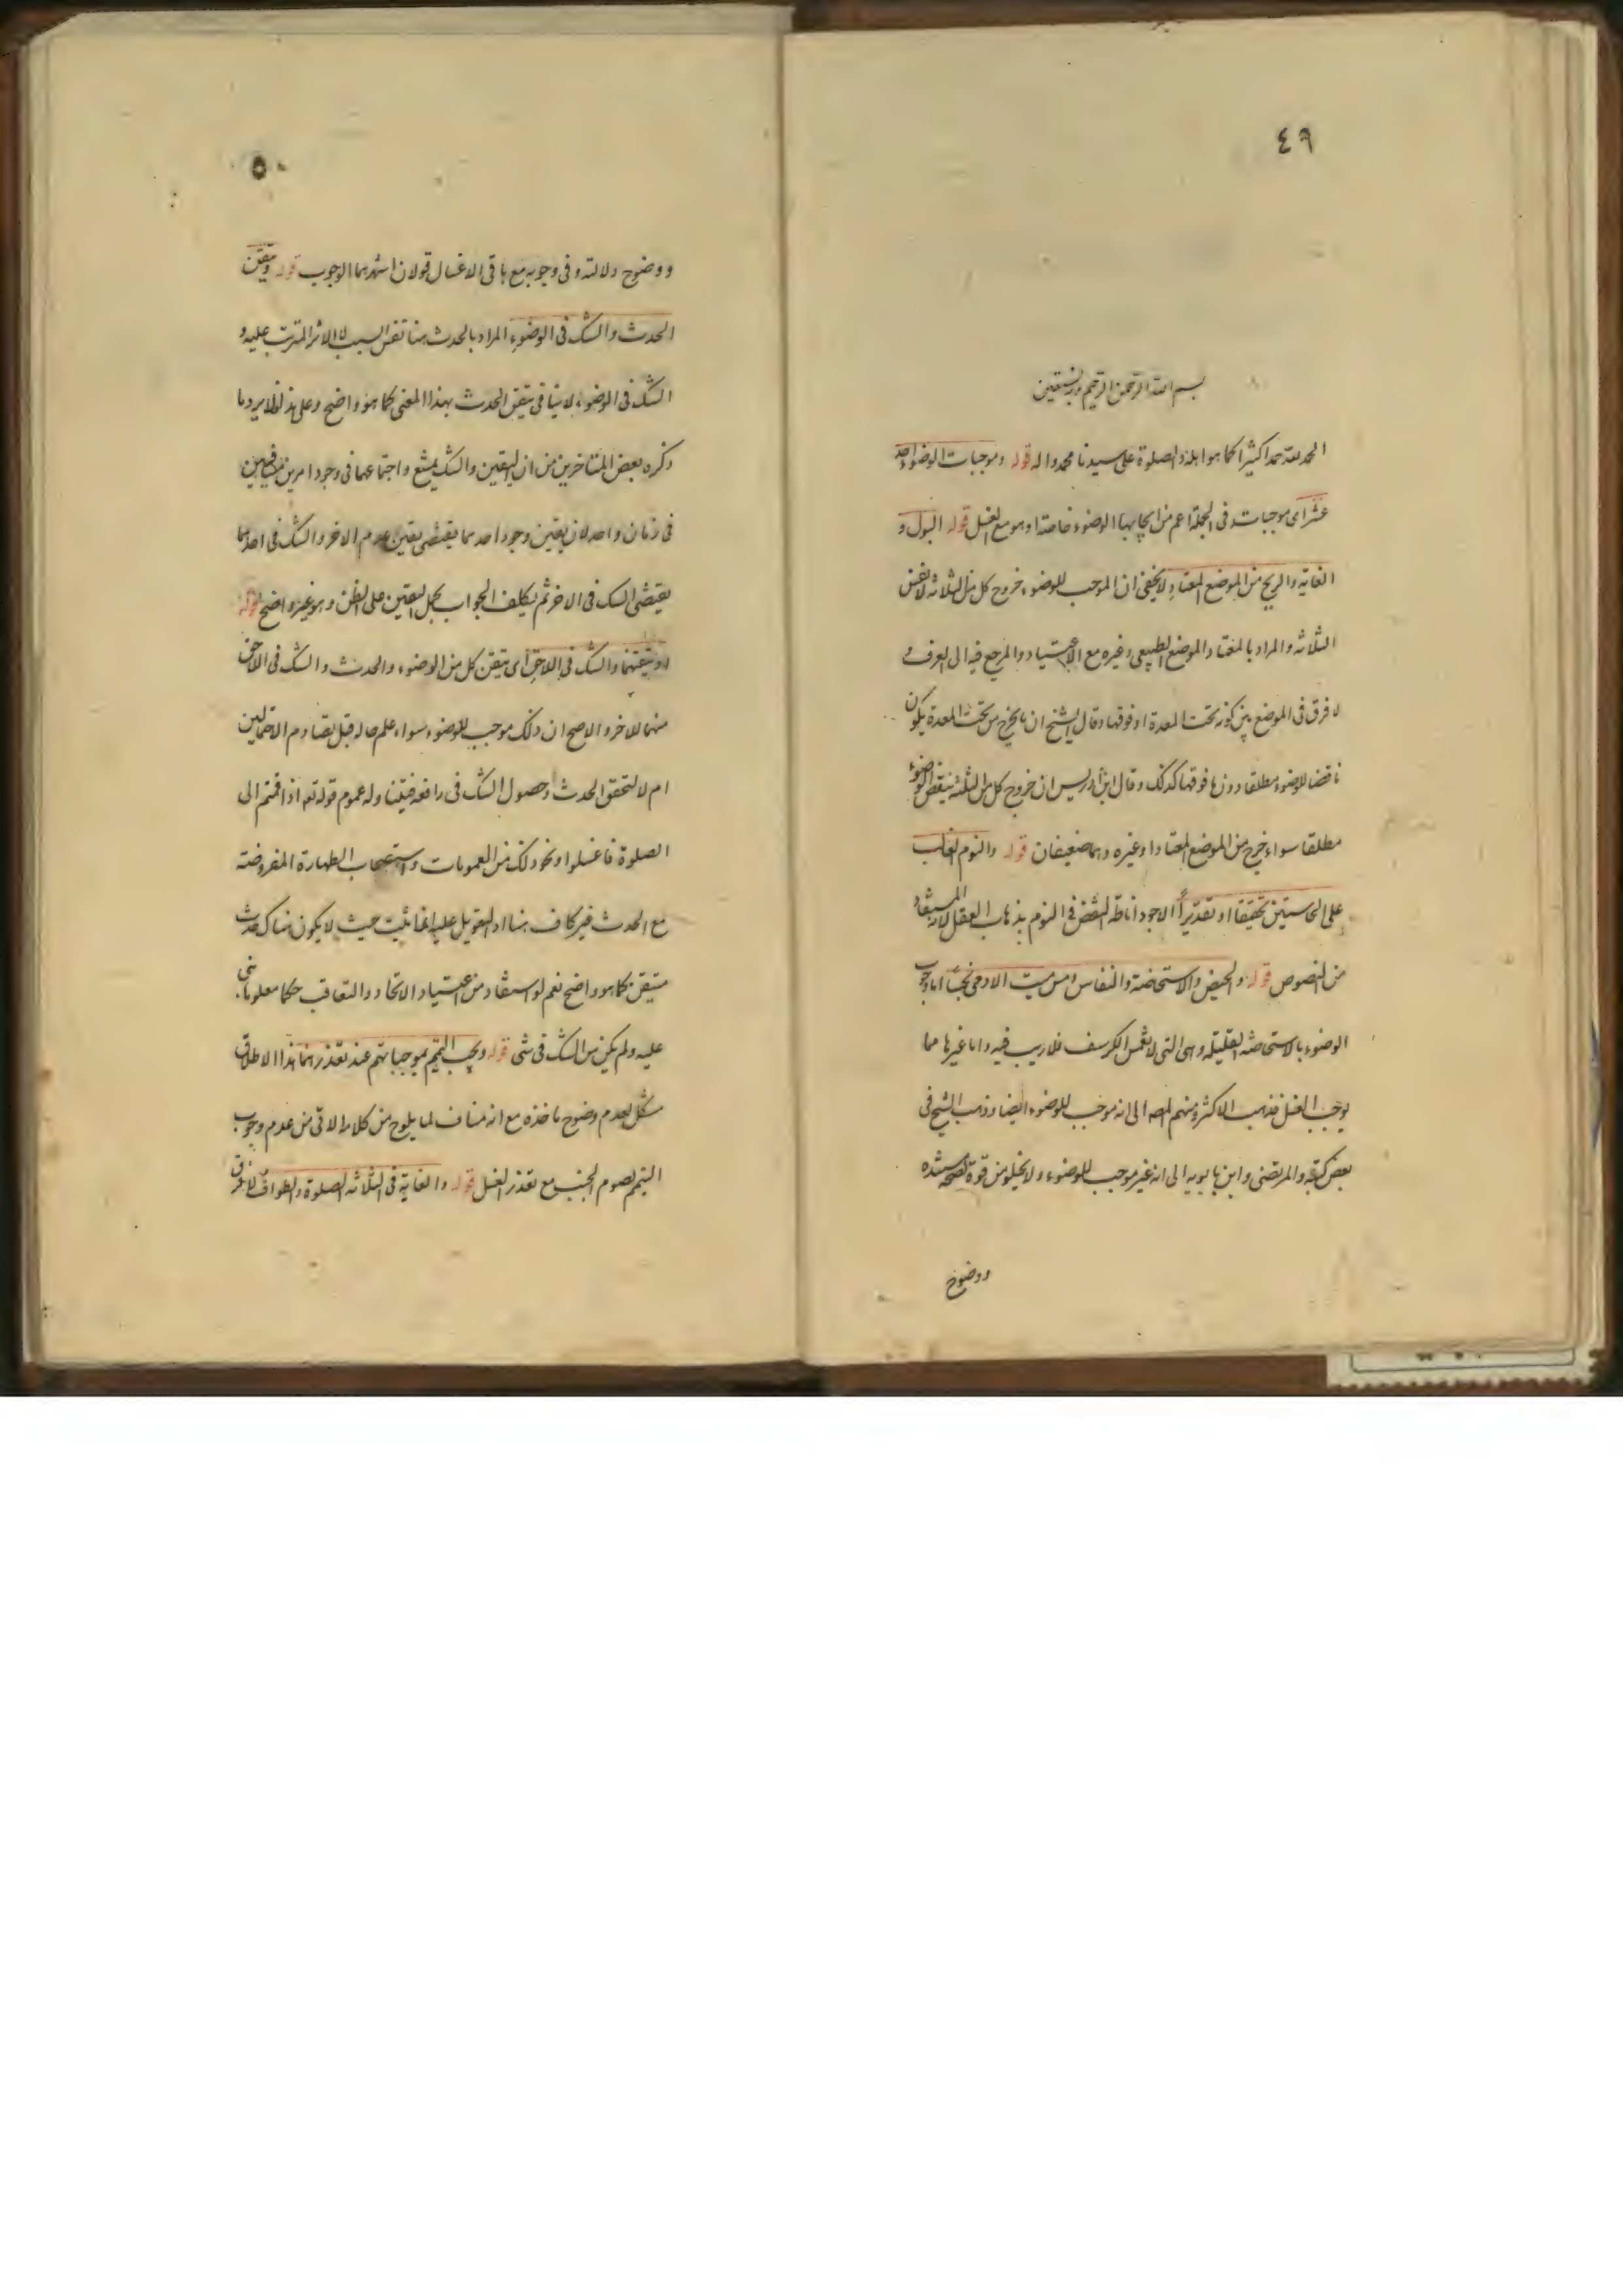 ٤٩
بسم الله الرحمن الرحيم وبه نستعين
الحمد لله حمدا كثيرا كما هو اهله والصلوة على سيدنا محمد واله قوله وموجبات الوضوء احد
عشر اى موجباته فى الجملة اعم من ايجابها الوضوء خاصة او هو مع الغسل قوله البول و
الغايط والريح من الموضع المعتاد لا يخفى ان الموجب للوضوء خروج كل من الثلاثة لا نفس
الثلاثة والمراد بالمعتاد الموضع الطبيعى وغيره مع الاعتياد والمرجع فيه الى العرف و
لا فرق فى الموضع بين كونه تحت المعدة او فوقها وقال الشيخ ان ما يخرج من تحت المعدة يكون
ناقضا للوضوء مطلقا دون ما فوقها كذلك وقال ابن ادريس ان خروج كل من الثلثة ينقض الوضوء
مطلقا سواء خرج من الموضع المعتاد او غيره وهما ضعيفان قوله والنوم الغالب
على الحاستين تحقيقا او تقديرا الاجود اناطة النقض فى النوم بذهاب العقل لانه المستفاد
من النصوص قوله والحيض والاستحاضة والنفاس ومس ميت الادمى نجسا اما وجوب
الوضوء بالاستحاضة القليلة وهى التى لا تغمس الكرسف فلا ريب فيه واما غيرها مما
يوجب الغسل فذهب الاكثر ومنهم المصه الى انه موجب للوضوء ايضا وذهب الشيخ فى
بعض كتبه والمرتضى وابن بابويه الى انه غير موجب للوضوء ولا يخلو من قوة لصحة سنده
ووضوح
٥٠
ووضوح دلالته وفى وجوبه مع باقى الاغسال قولان اشهرهما الوجوب قوله وتيقن
الحدث والشك فى الوضوء المراد بالحدث هنا نفس السبب لا الاثر المترتب عليه و
الشك فى الوضوء لا ينافى تيقن الحدث بهذا المعنى كما هو واضح وعلى هذا فلا يرد ما
ذكره بعض المتاخرين من ان اليقين والشك يمتنع واجتماعهما فى وجود امرين متنافيين
فى زمان واحد لان يقين وجود احدهما يقتضى يقين عدم الاخر والشك فى احدهما
يقتضى الشك فى الاخر ثم تكلف الجواب بحمل اليقين على الظن وهو غير واضح قوله
او تيقنهما والشك فى اللاحق اى تيقن كل من الوضوء والحدث والشك فى اللاحق
منهما للاخر والاصح ان ذلك موجب للوضوء سواء علم حاله قبل تصادم الاحتمالين
ام لا لتحقق الحدث وحصول الشك فى رافعه فيتناوله عموم قوله تع اذا قمتم الى
الصلوة فاغسلوا ونحو ذلك من العمومات واستصحاب الطهارة المفروضة
مع الحدث غير كاف هنا اذ التعويل عليه انما يثبت حيث لا يكون هناك حدث
متيقن كما هو واضح نعم لو استفاد من اعتياد الاتحاد والتعاقب حكما معلوما بنى
عليه ولم يكن من الشك فى شى قوله ويجب التيمم بموجباتهم عند تعذرهما هذا الاطلاق
مشكل لعدم وضوح ماخذه مع انه مناف لما يلوح من كلامه الاتى من عدم وجوب
التيمم لصوم الجنب مع تعذر الغسل قوله والغاية فى الثلاثة الصلوة والطواف لا فرق